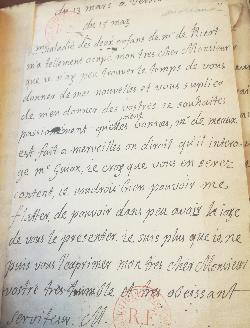 du 13 mars a Versa
du 15 mars
La maladie des deux enfans de mr de
m'a tellement occupé mon tres cher Monsieur
que ie n'ay peu trouver le temps de vous
donner de mes nouvelles et vous suplier
de m'en donner des vostres ie souhaitte
passionement quelles soient bonnes, mr de meaux
est fait a merveilles on diroit qu'il intero-
ge mr ie croy que vous en serez
content, ie voudrois bien pouvoir me
flatter, de pouvoir dans peu avoir la ioye
de vous le presenter. ie suis plus que ie ne
puis vous l'exprimer mon tres cher Monsieur
vostre tres humble et tres obeissant
serviteur
R.F.